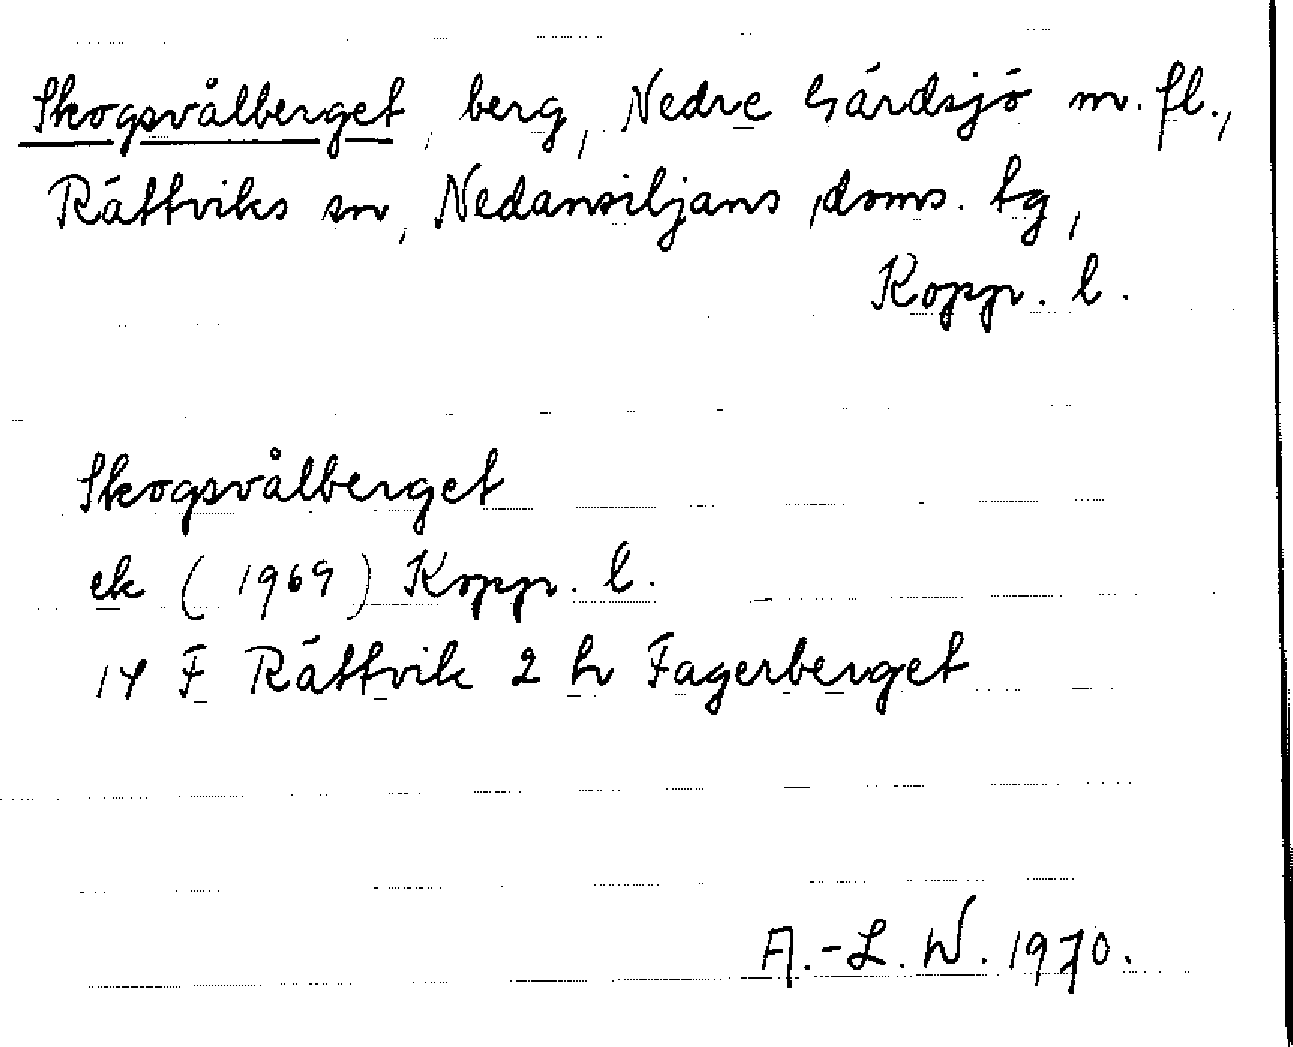 Skogsvålberget, berg, Nedre Gärdsjö m. fl.,
Rättviks sn, Nedansiljans doms. tg,
Kopp. l.
Skogsvålberget
ek (1969) Kopp. l.
14 F Rättvik 2 h Fagerberget
A.-L. W. 1970.